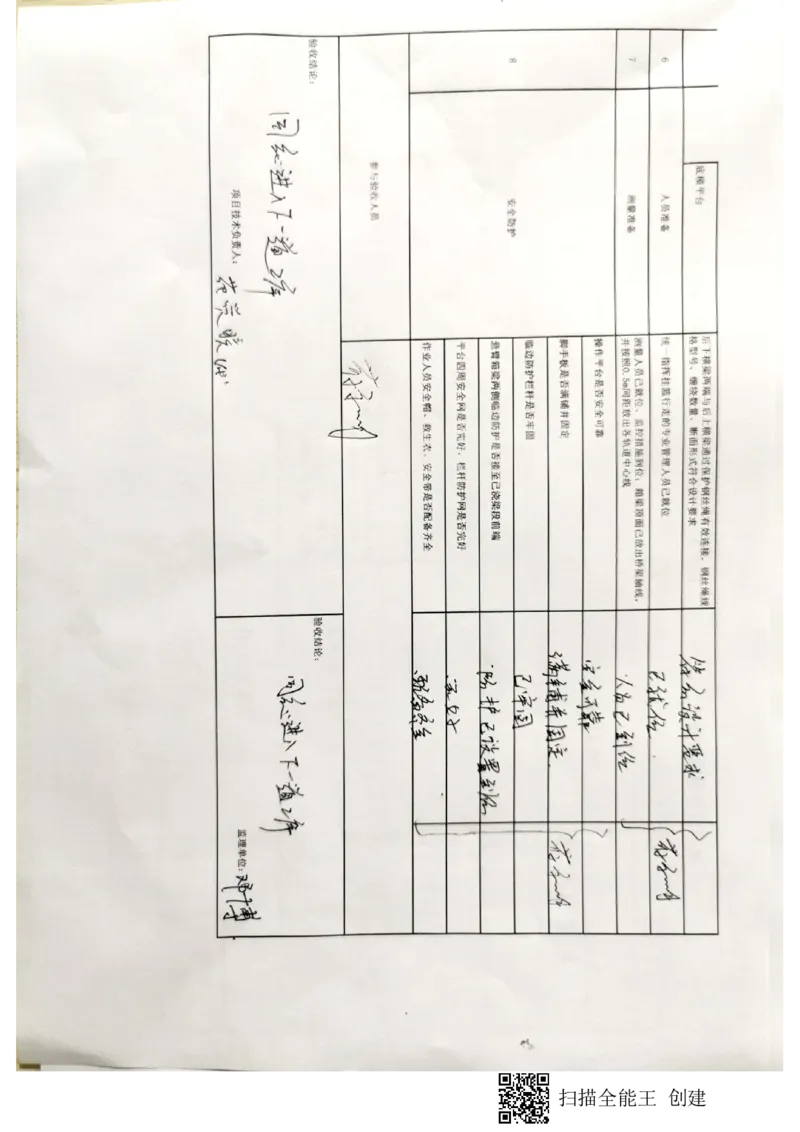 底模平台
后下横梁两端与后上横梁通过保护钢丝绳有效连接，钢丝绳规
格型号、缠绕数量、断面形式符合设计要求
符合设计要求
6
人员准备
统一指挥挂篮行走的专业管理人员已就位
已就位.
7
测量准备
测量人员已就位、监控措施到位；箱梁顶面已放出桥梁轴线，
并按照0.5m间距放出各轨道中心线
人员已到位
8
安全防护
操作平台是否安全可靠
安全可靠
脚手板是否满铺并固定
满铺并固定.
临边防护栏杆是否牢固
已牢固
悬臂箱梁两侧临边防护是否接至已浇梁段前端
防护已设置到位
平台四周安全网是否完好，栏杆防护网是否完好
完好
作业人员安全帽、救生衣、安全带是否配备齐全
配备齐全
参与验收人员
验收结论：
同意进入下一道工序
项目技术负责人：
验收结论：
同意进入下一道工序
监理单位：邓博
扫描全能王 创建